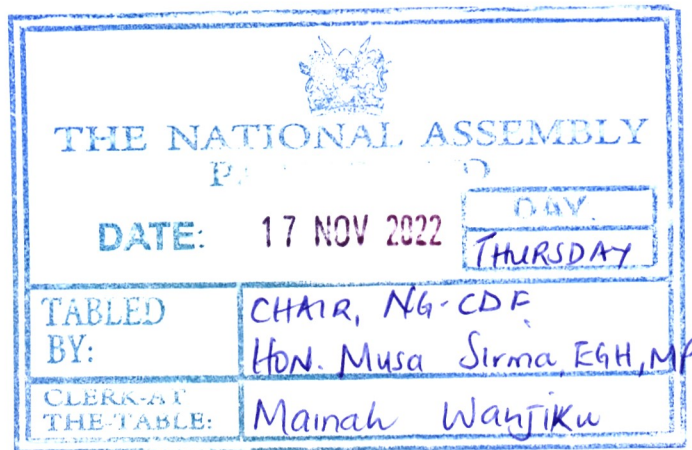 THE NATIONAL ASSEMBLY
DATE: 17 NOV 2022
DAY.
THURSDAY
TABLED BY:
CHAIR, NG-CDF
HON. Musa Sirma, EGH, MP
CLERK-AT THE-TABLE:
Mainah Wanjiku